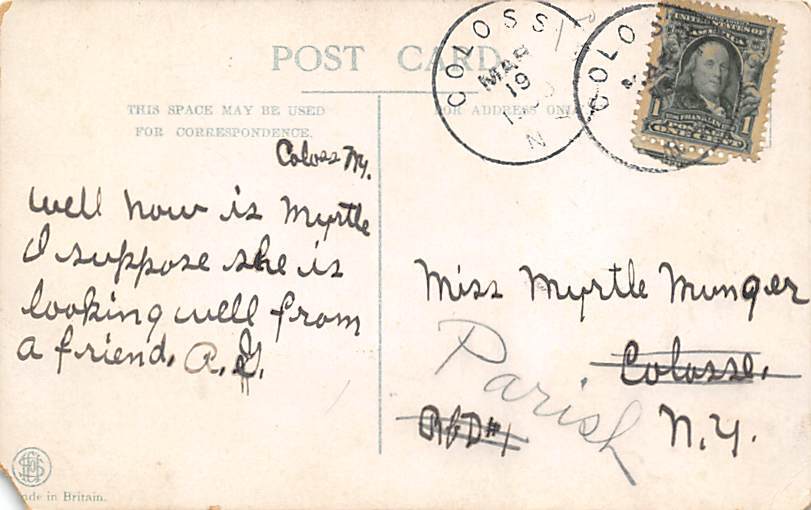 POST CARD
THIS SPACE MAY BE USED
FOR CORRESPONDENCE.
FOR ADDRESS ONLY
COLOSS
MAR
19
N
COLOS
UNITED STATES OF
AMERICA
1 1
FRANKLIN
POSTAGE
ONE CENT
Coloss NY.
well how is Myrtle
I suppose she is
looking well from
a friend. A.
Miss Myrtle Munger
Colosse.
Parish
RFD#1
N.Y.
ade in Britain.